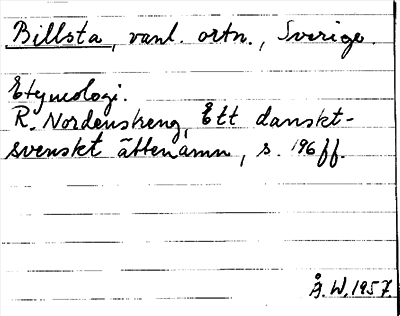 Billsta, vanl. ortn., Sverige.
Etymologi.
R. Nordenstreng, Ett danskt-
svenskt ättenamn, s. 196 ff.
Å. W. 1957.